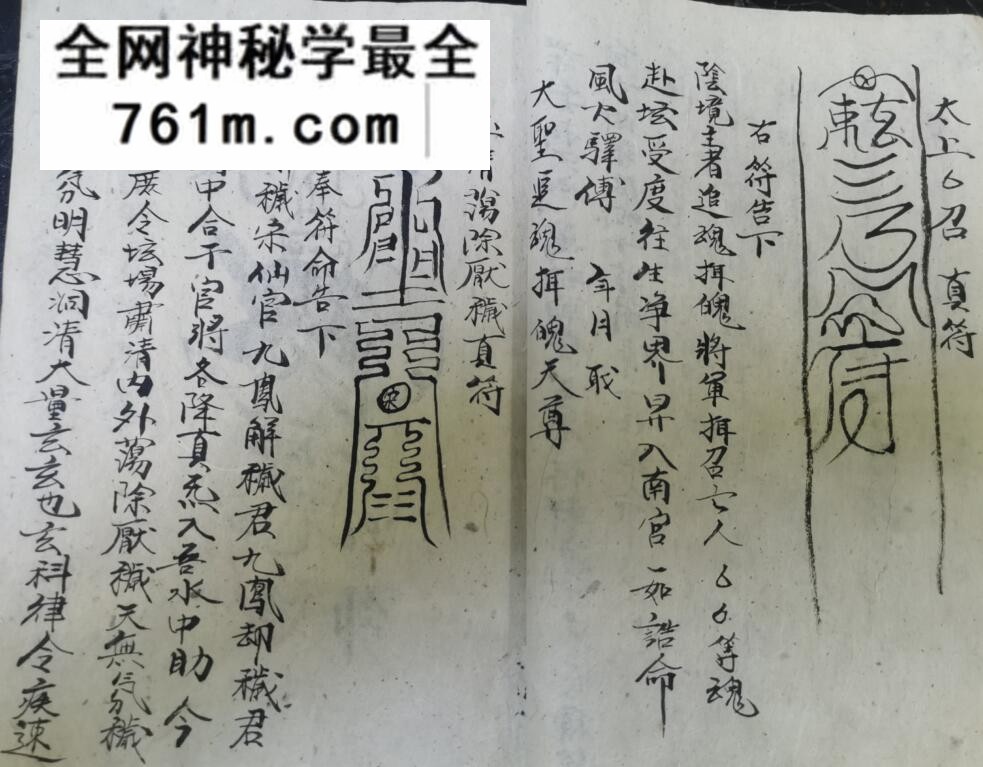 全网神秘学最全
761m.com
太上厶召 真符
右符告下
陰境主者追魂攝魄將軍攝召亡人 厶厶等魂
赴坛受度往生净界昇入南宫一如誥命
風火驛傳 年月 耿
大聖追魂攝魄天尊
蕩除厭穢真符
奉符命告下
穢宋仙官九鳳解穢君九鳳却穢君
中合干官將各降真炁入吾水中助今
展令坛場肅清内外蕩除厭穢天無氛穢
氛明慧洞清大量玄玄也玄科律令疾速